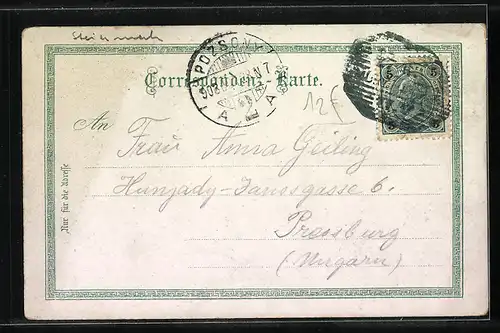 Steiermark
POZSONY
Correspondenz-Karte.
12€
5 5
An
Frau Anna Geiling
Hunyady-Janosgasse 6.
Pressburg
(Ungarn)
Nur für die Adresse